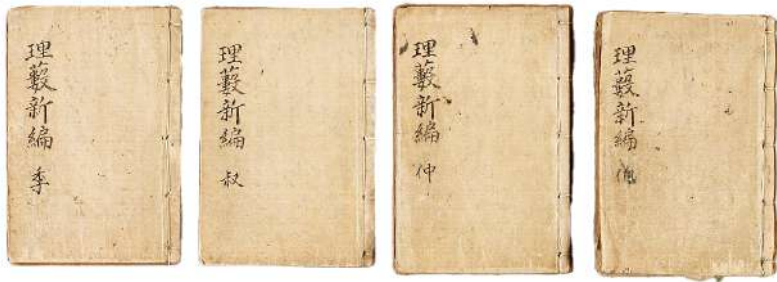 理藪新編
理藪新編 仲
理藪新編 叔
理藪新編 季